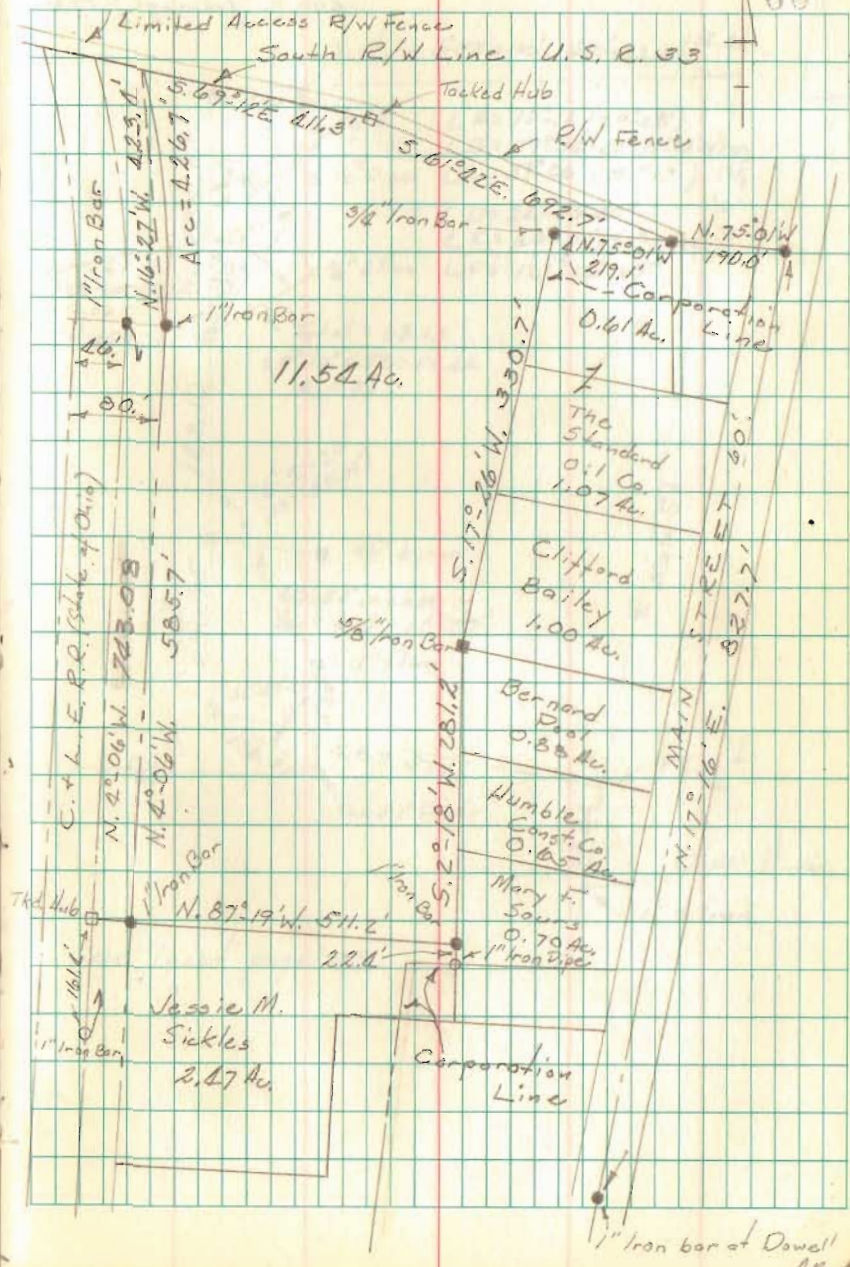 Limited Access R/W Fence
South R/W Line U.S.R. 33
S. 69°-12'E. 411.3'
Tacked Hub
S. 61°-42'E. 692.7'
R/W Fence
3/4" Iron Bar
N. 75°-01'W
219.1'
N. 75°-01'W
190.0'
Corporation
Line
0.61 Ac.
1" Iron Bar
N. 16°-27'W. 423.4'
Arc = 426.7'
1" Iron Bar
46.'
80.'
11.54 Ac.
S. 17°-26'W. 330.7'
The
Standard
Oil Co.
1.07 Ac.
Clifford
Bailey
1.00 Ac.
5/8" Iron Bar
Bernard
Pool
0.88 Ac.
Humble
Const. Co.
0.65 Ac.
Mary F.
Sours
0.70 Ac.
S. 2°-18'W. 281.2'
MAIN STREET 60.'
N. 17°-16'E. 827.7'
C. & L. E. R.R. (State of Ohio)
N. 4°-06'W. 743.08
N. 4°-06'W. 585.7'
Tkd. Hub
1" Iron Bar
N. 87°-19'W. 511.2'
1" Iron Bar
22.4'
1" Iron Pipe
161.6'
1" Iron Bar
Jessie M.
Sickles
2.47 Ac.
Corporation
Line
1" Iron bar at Dowell